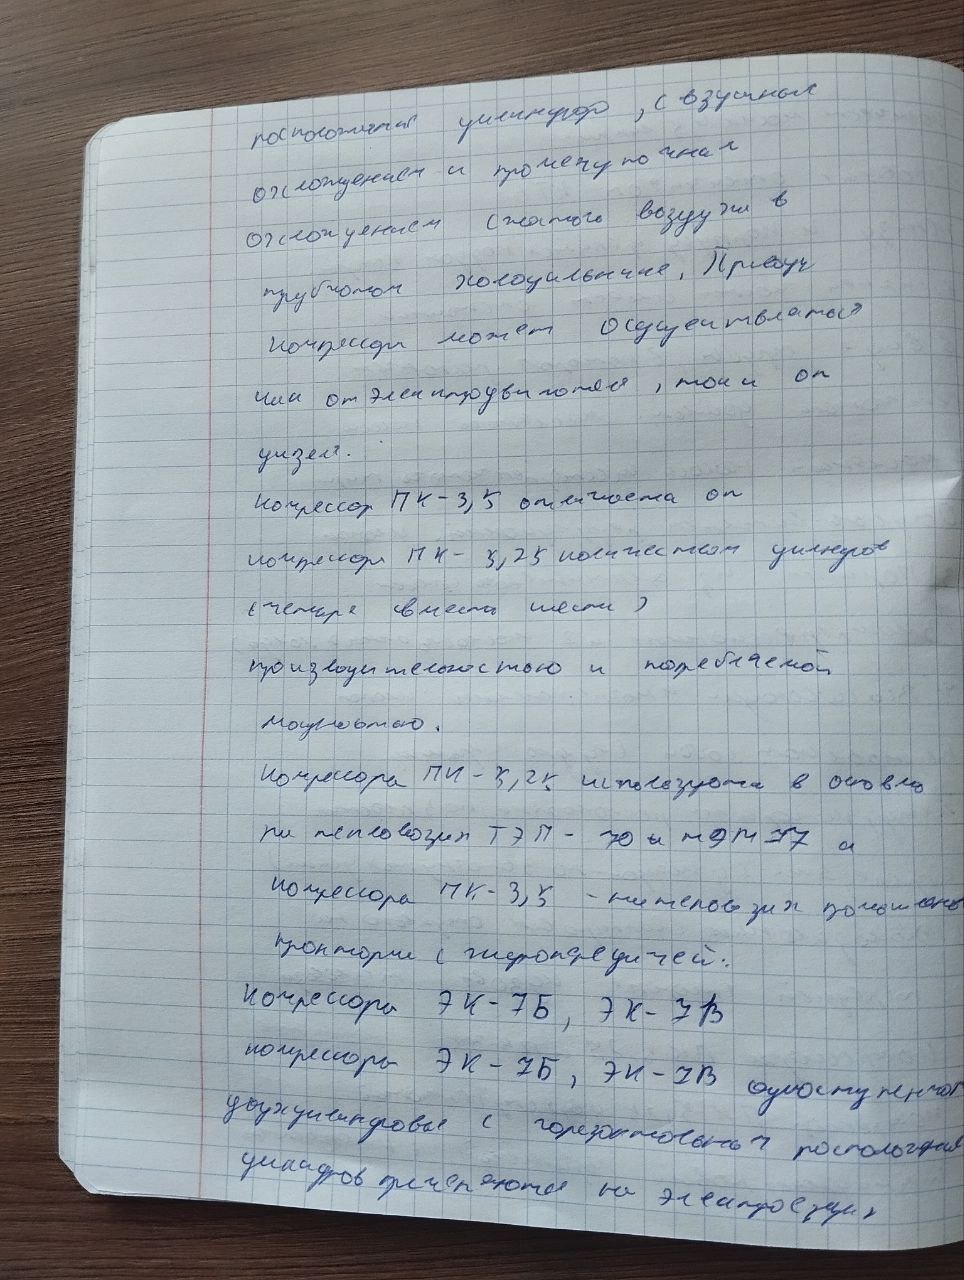 расположения цилиндров, с вздушным
охлождением и промежуточнал
охлождением сжатого воздуха в
трубчатом холодильнике, Привод
Компрессора может осуществлятся
или от электродвигателя, так и от
дизеля.
Компрессор ПК-3,5 отличается от
компрессора ПК-5,25 количеством цилиндров
(четыре вместо шести)
производительностью и потребляемой
мощностью.
Компрессора ПК-5,25 используются в основно
на тепловозах ТЭП-70 и
компрессора ПК-3,5 - на теповозах
с гидропередачей.
Компрессора ЭК-7Б, ЭК-7В
компрессоры ЭК-7Б, ЭК-7В одноступенчат
двухцилиндровые с горезонтальным расположения
цилиндров применяются на электросекциях